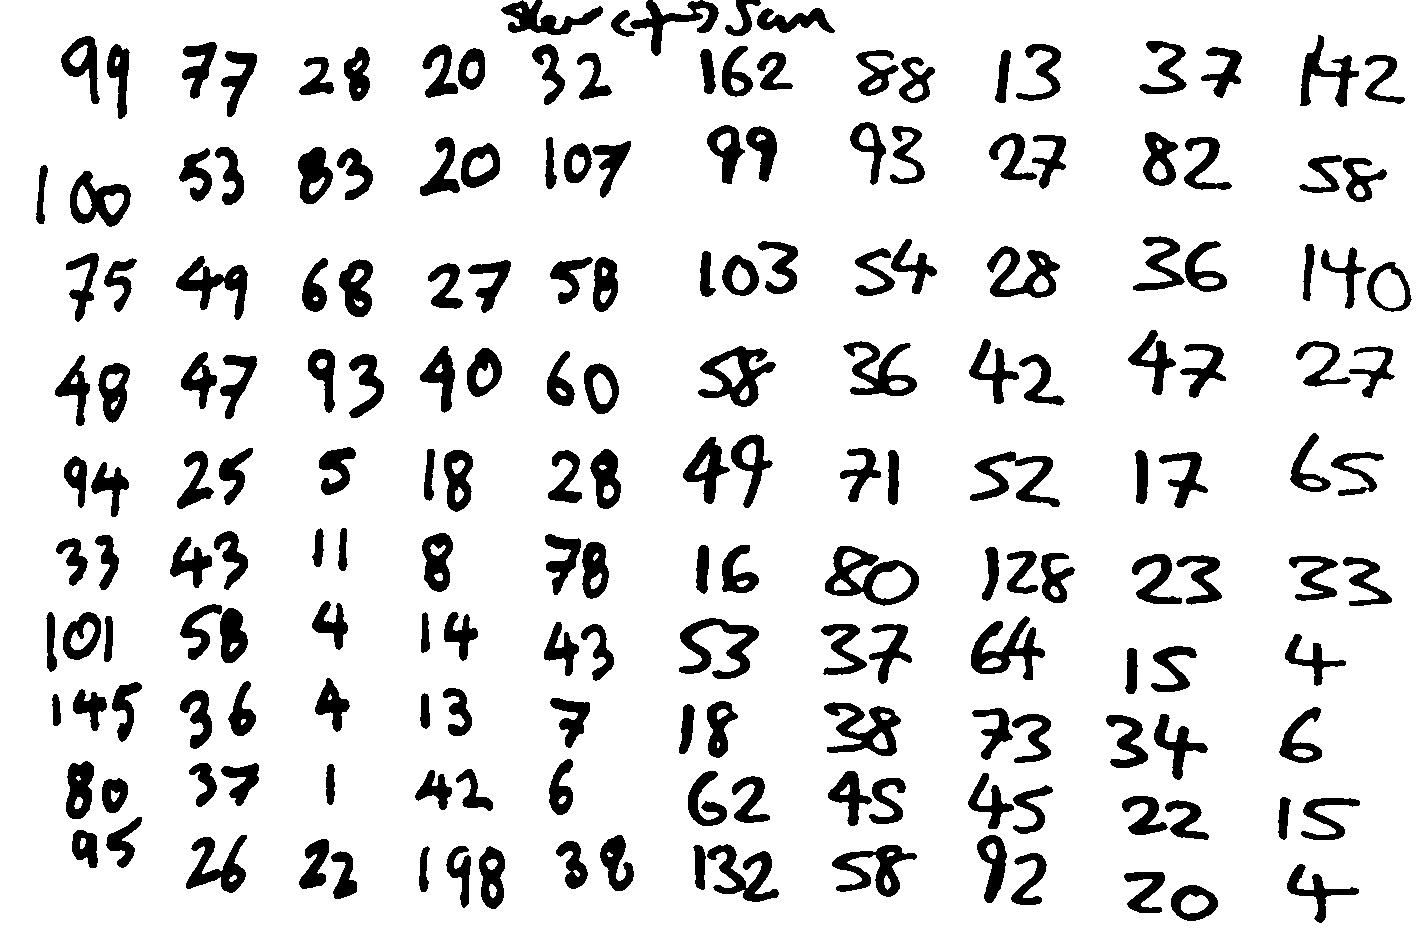 <+> Sam
99 77 28 20 32 162 88 13 37 142
100 53 83 20 107 99 93 27 82 58
75 49 68 27 58 103 54 28 36 140
48 47 93 40 60 58 36 42 47 27
94 25 5 18 28 49 71 52 17 65
33 43 11 8 78 16 80 128 23 33
101 58 4 14 43 53 37 64 15 4
145 36 4 13 7 18 38 73 34 6
80 37 1 42 6 62 45 45 22 15
95 26 22 198 38 132 58 92 20 4